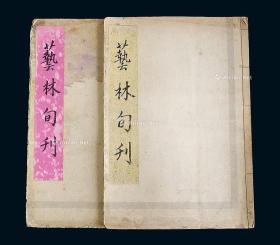 藝林旬刊
藝林旬刊